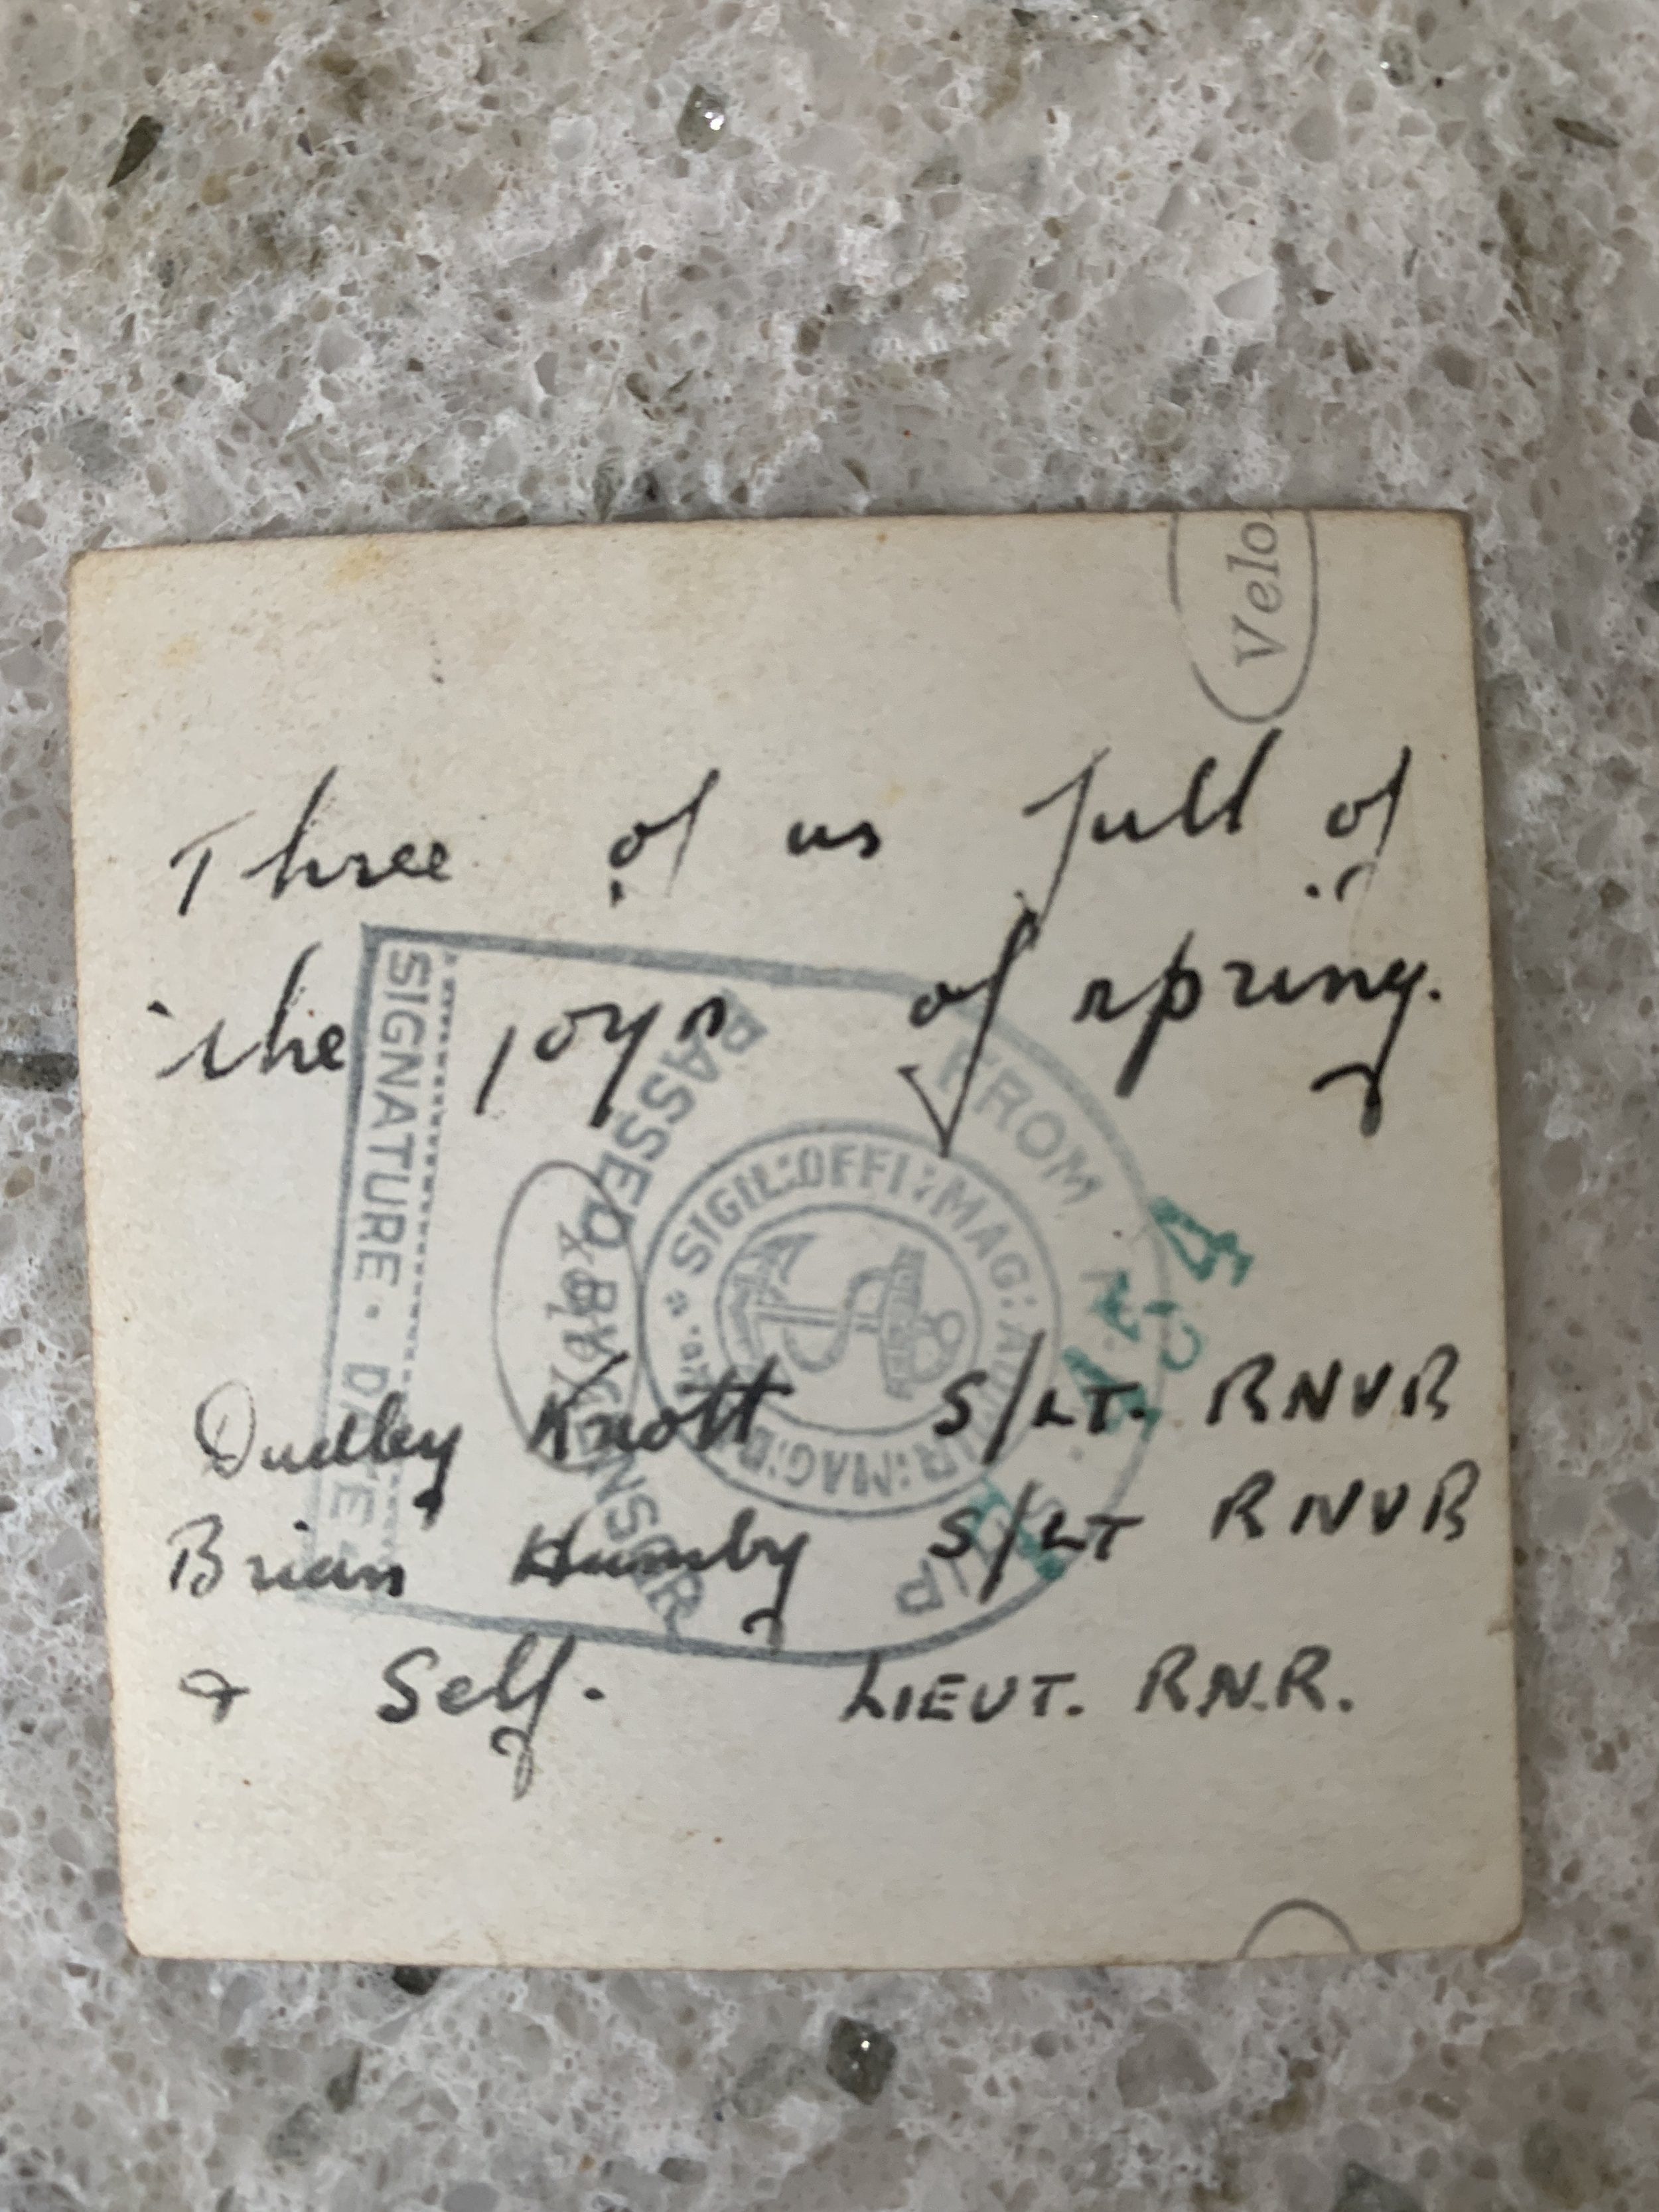 Velo
Three of us full of
the joys of spring.
Dudley Knott S/LT. RNVR
Brian Humby S/LT RNVR
& Self. LIEUT. R.N.R.
PASSED BY CENSOR
FROM H.M. SHIP
SIGIL:OFFI:MAG:
SIGNATURE · DATE